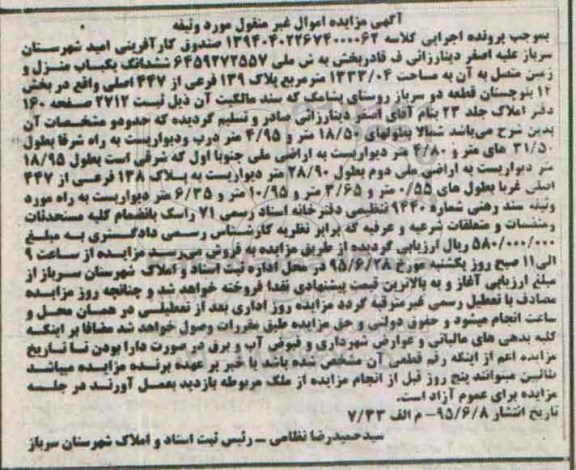 آگهی مزایده اموال غیر منقول مورد وثیقه
بموجب پرونده اجرایی کلاسه ۱۳۹۴۰۴۰۲۲۶۷۴۰۰۰۰۶۲ صندوق کارآفرینی امید شهرستان
سرباز علیه اصغر دینارزائی ف قادربخش به ش ملی ۶۴۵۹۲۷۲۵۵۷ ششدانگ یکباب منزل و
زمین متصل به آن به مساحت ۱۳۳۳/۰۴ مترمربع پلاک ۱۳۹ فرعی از ۴۴۷ اصلی واقع در بخش
۱۲ بلوچستان قطعه دو سرباز روستای پشامک که سند مالکیت آن ذیل ثبت ۲۷۱۲ صفحه ۱۶۰
دفتر املاک جلد ۲۳ بنام آقای اصغر دینارزائی صادر و تسلیم گردیده که حدودو مشخصات آن
بدین شرح می‌باشد شمالا بطولهای ۱۸/۵۰ متر و ۴/۹۵ متر درب ودیواریست به راه شرقا بطول
۳۱/۵۰ های متر و ۴/۸۰ متر دیواریست به اراضی ملی جنوبا اول که شرقی است بطول ۱۸/۹۵
متر دیواریست به اراضی ملی دوم بطول ۲۸/۹۰ متر دیواریست به پلاک ۱۳۸ فرعی از ۴۴۷
اصلی غربا بطول های ۰/۵۵ متر و ۳/۶۵ متر و ۱۰/۹۵ متر و ۶/۳۵ متر دیواریست به راه مورد
وثیقه سند رهنی شماره ۹۴۴۰ تنظیمی دفترخانه اسناد رسمی ۷۱ راسک بانضمام کلیه مستحدثات
ومنضمات و متعلقات شرعیه و عرفیه که برابر نظریه کارشناس رسمی دادگستری به مبلغ
۵۸۰/۰۰۰/۰۰۰ ریال ارزیابی گردیده از طریق مزایده به فروش می‌رسد مزایده از ساعت ۹
الی۱۱ صبح روز یکشنبه مورخ ۹۵/۶/۲۸ در محل اداره ثبت اسناد و املاک شهرستان سرباز از
مبلغ ارزیابی آغاز و به بالاترین قیمت پیشنهادی نقدا فروخته خواهد شد و چنانچه روز مزایده
مصادف با تعطیل رسمی غیرمترقبه گردد مزایده روز اداری بعد از تعطیلی در همان محل و
ساعت انجام میشود و حقوق دولتی و حق مزایده طبق مقررات وصول خواهد شد مضافا بر اینکه
کلیه بدهی های مالیاتی و عوارض شهرداری و قبوض آب و برق در صورت دارا بودن تا تاریخ
مزایده اعم از اینکه رقم قطعی آن مشخص شده باشد یا خیر بر عهده برنده مزایده میباشد
طالبین میتوانند پنج روز قبل از انجام مزایده از ملک مربوطه بازدید بعمل آورند در جلسه
مزایده برای عموم آزاد است.
تاریخ انتشار ۹۵/۶/۸- م الف ۷/۴۳
سیدحمیدرضا نظامی – رئیس ثبت اسناد و املاک شهرستان سرباز